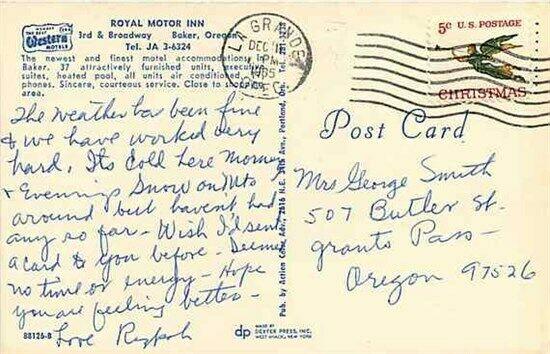 MEMBER
THE BEST
Western
MOTELS
ROYAL MOTOR INN
3rd & Broadway Baker, Oregon
Tel. JA 3-6324
The newest and finest motel accommodations in
Baker. 37 attractively furnished units, executive
suites, heated pool, all units air conditioned,
phones. Sincere, courteous service. Close to
area.
The Weather has been fine
& we have worked very
hard. Its Cold here Mornen
& Evenings Snow on Mts
around but havent had
any so far - Wish I'd sent
a Card to you before - Seemed
no time or energy - Hope
you are feeling better -
Love
88126-B
Pub. by Action Card Adv., 2816 N.E. Ave., Portland, Ore. Tel.
dp
MADE BY
DEXTER PRESS, INC.
WEST NYACK, NEW YORK
LA GRANDE
DEC
PM
1965
OREG
5¢ U.S. POSTAGE
CHRISTMAS
Post Card
Mrs George Smith
507 Butler St.
Grants Pass -
Oregon 97526